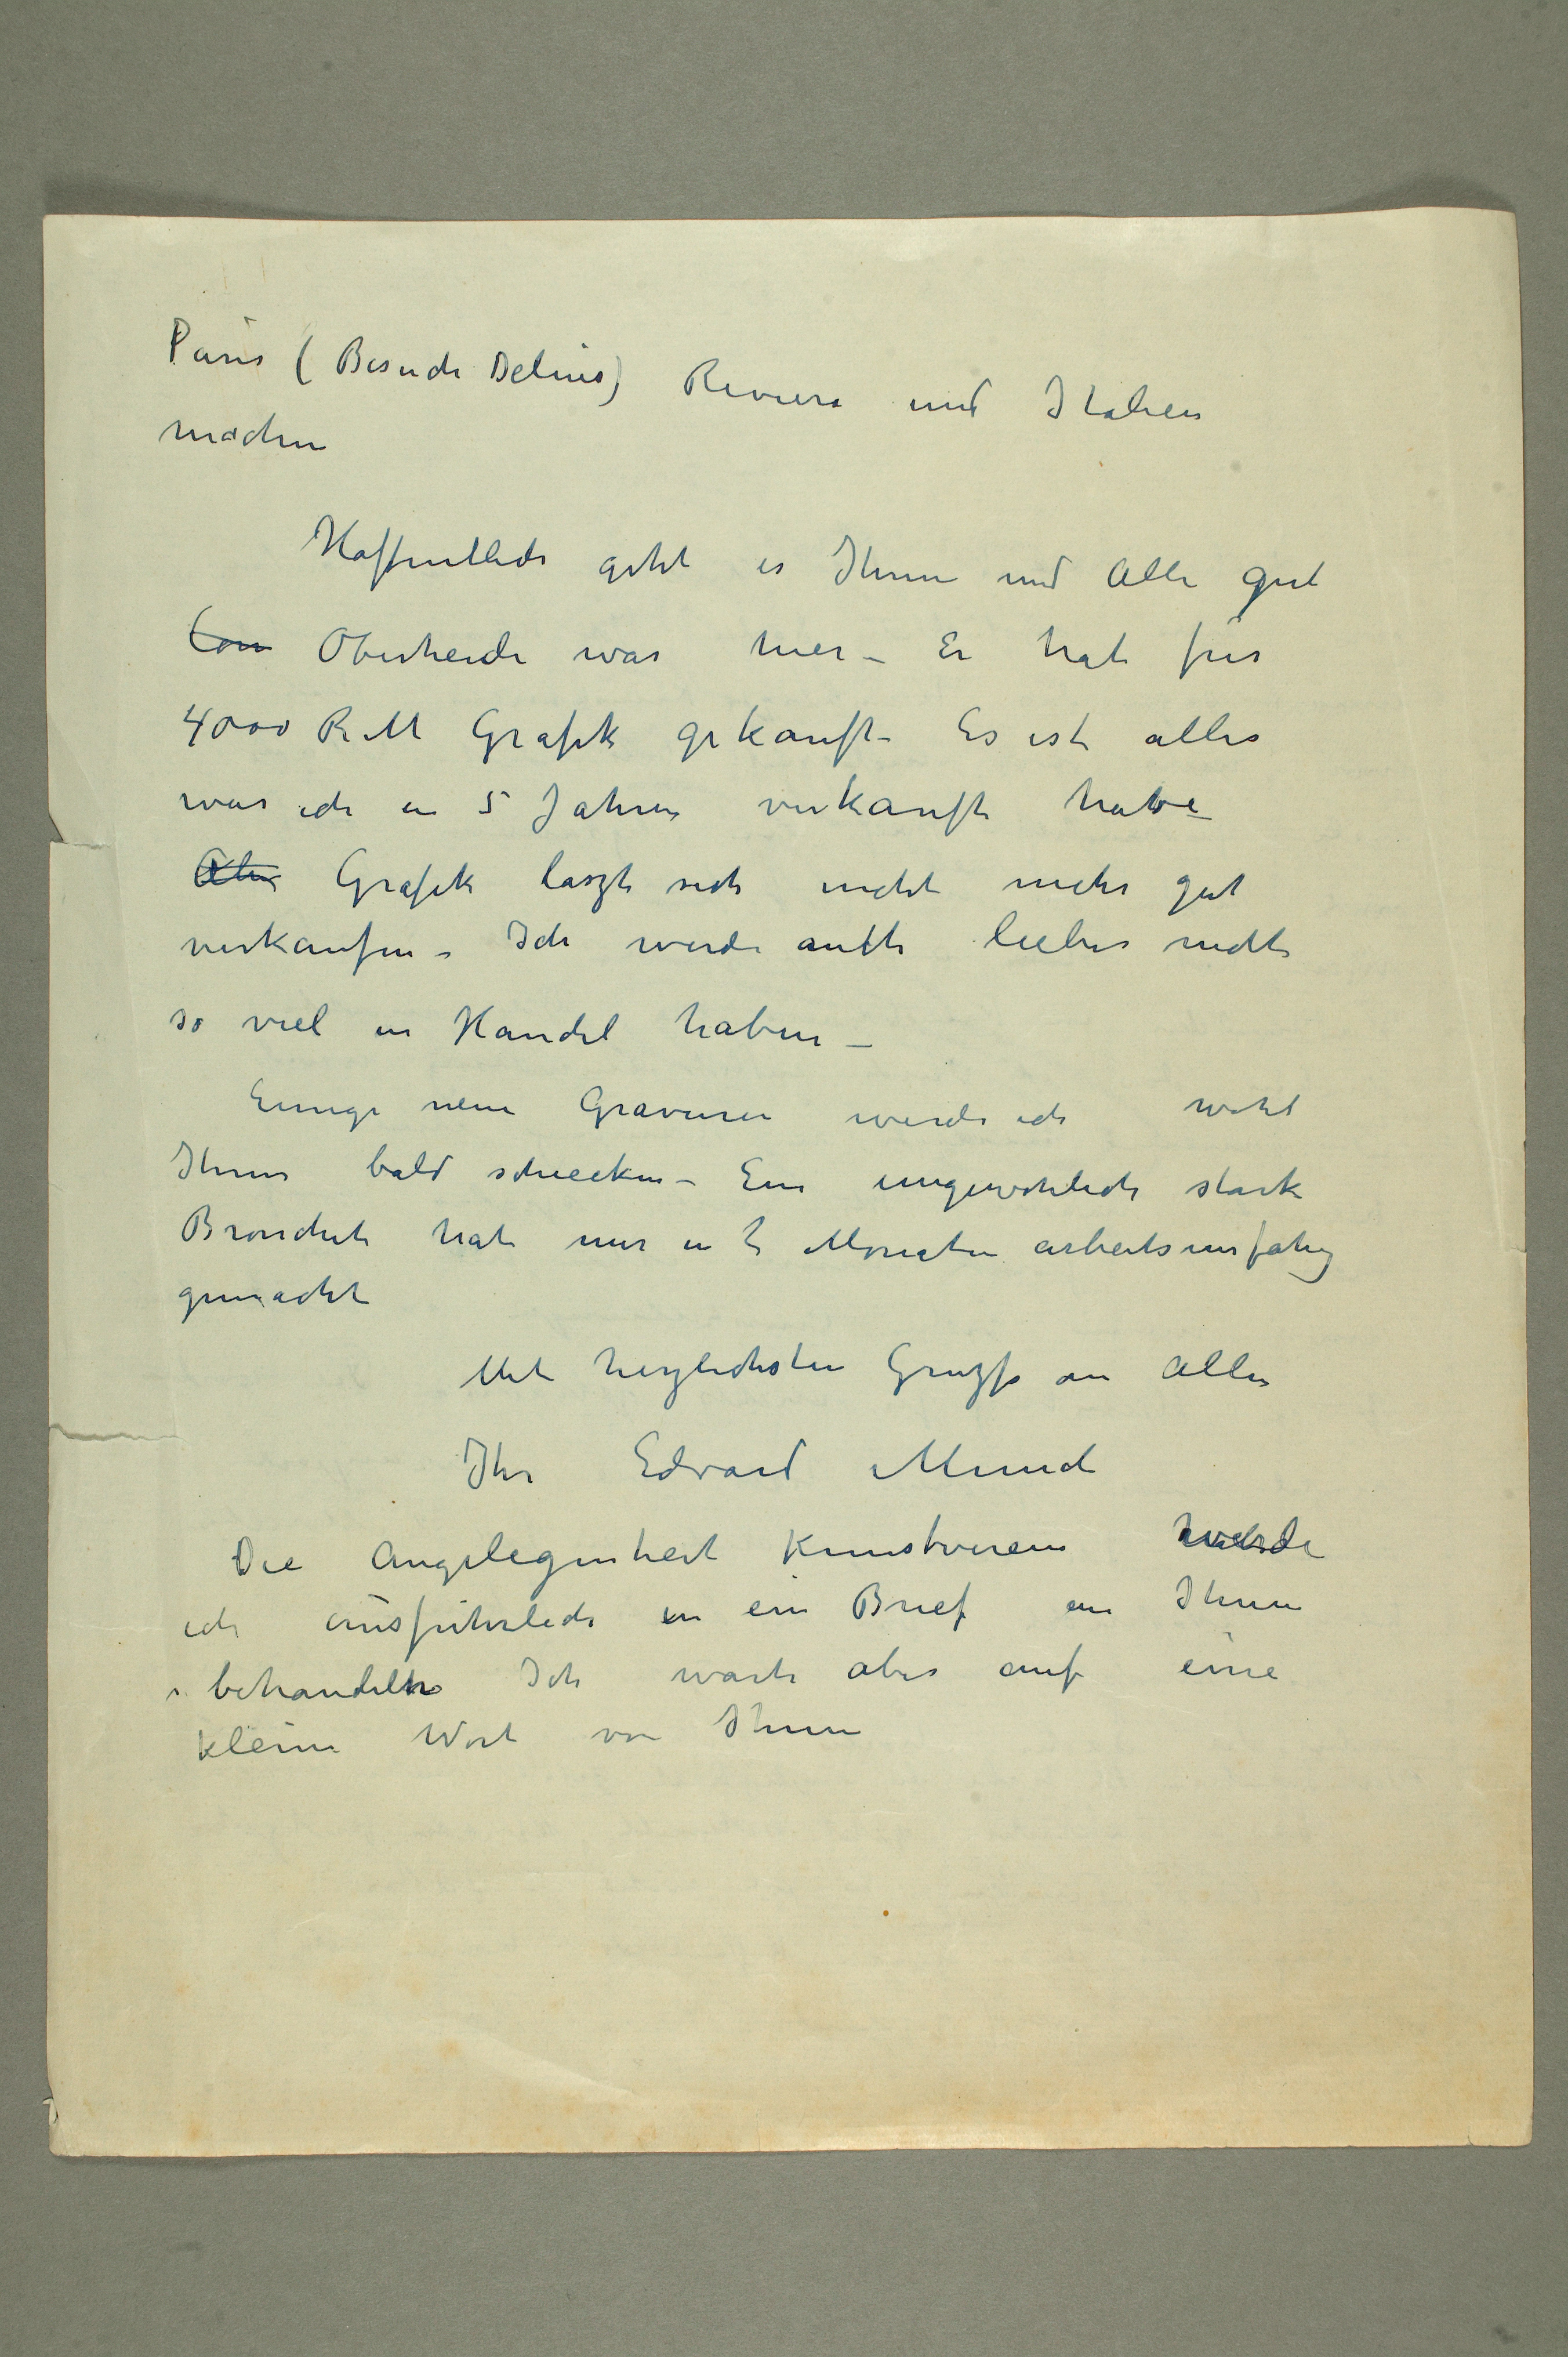 Paris (Besuch Delius) Riviera und Italien
machen
Hoffentlich geht es Ihnen und Alle gut
Oberheide war hier – Er hat für
4000 R.M Grafik gekauft – Es ist alles
was ich in 5 Jahren verkauft habe –
Grafik laszt sich nicht mehr gut
verkaufen – Ich werde auch lieber nicht
so viel in Handel haben –
Einige neue Gravuren werde ich wohl
Ihnen bald schicken – Ein ungewohnlich stark
Bronchit hat mir in Monaten arbeitsunfahig
gemacht
Mit herzlichsten Gruzs an Alle
Ihr Edvard Munch
Die Angelegenheit Kunstverein werde
ich ausführlich in ein Brief an Ihnen
behandeln Ich warte aber auf eine
kleine Wort von Ihnen